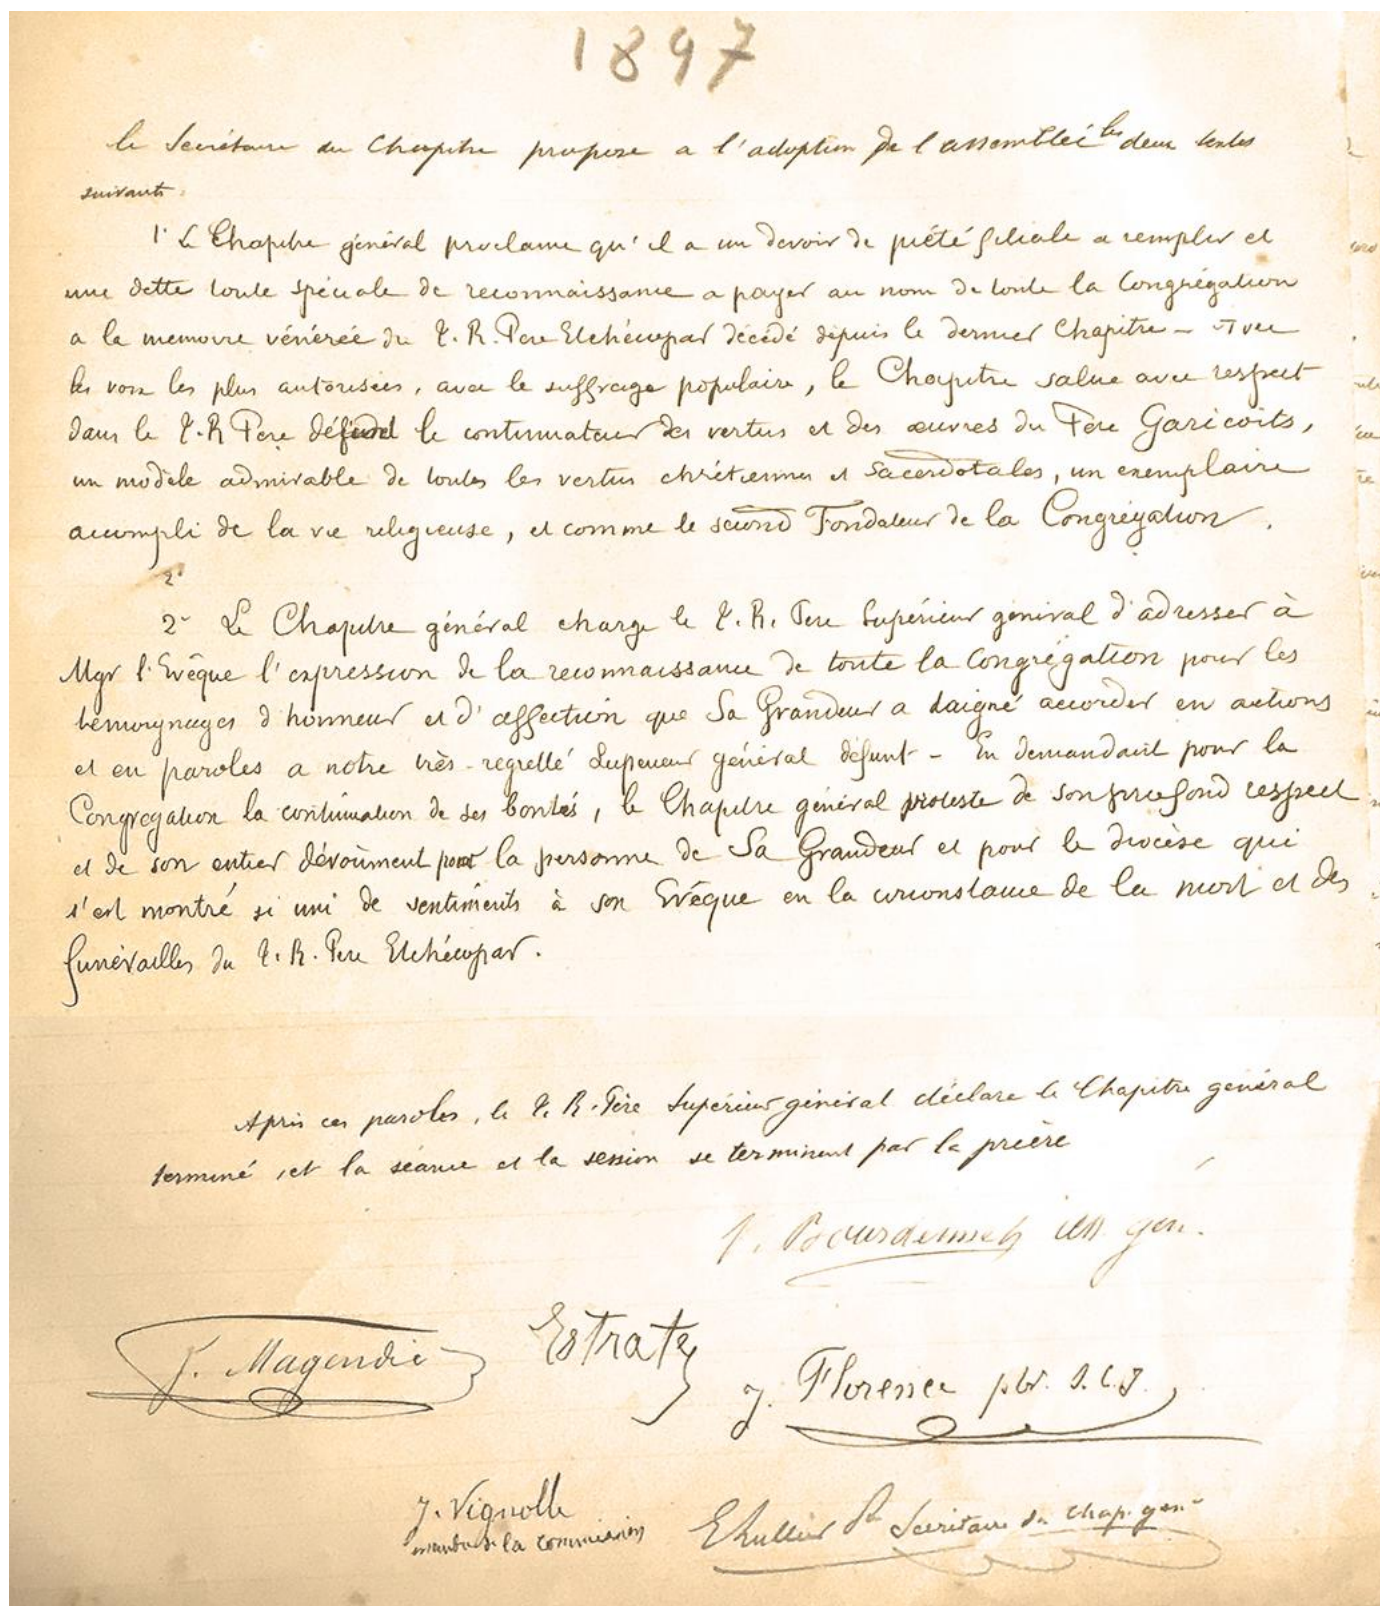 1897
le Secrétaire du Chapitre propose a l'adoption de l'assemblée les deux textes
suivants.
1° Le Chapitre général proclame qu'il a un devoir de piété filiale a remplir et
une dette toute spéciale de reconnaissance a payer au nom de toute la Congrégation
a la memoire vénérée du T. R. Père Etchécopar décédé depuis le dernier Chapitre – Avec
les voix les plus autorisées, avec le suffrage populaire, le Chapitre salue avec respect
dans le T. R Père défunt le continuateur des vertus et des œuvres du Père Garicoits,
un modèle admirable de toutes les vertus chrétiennes et sacerdotales, un exemplaire
accompli de la vie religieuse, et comme le second Fondateur de la Congrégation.
2°
2° Le Chapitre général charge le T. R. Père Supérieur général d'adresser à
Mgr l'Evêque l'expression de la reconnaissance de toute la Congrégation pour les
témoignages d'honneur et d'affection que Sa Grandeur a daigné accorder en actions
et en paroles a notre très-regretté Supérieur général défunt – En demandant pour la
Congrégation la continuation de ses bontés, le Chapitre général proteste de son profond respect
et de son entier dévoûment pour la personne de Sa Grandeur et pour le diocèse qui
s'est montré si uni de sentiments à son Evêque en la circonstance de la mort et des
funérailles du T. R. Père Etchécopar.
Après ces paroles, le T. R. Père Supérieur général déclare le Chapitre général
terminé, et la séance et la session se terminent par la prière
Bourdenne
J. Magendie
Estrate
J. Florence pbr. S.C.J.
J. Vignolle
membre de la commission
Secrétaire du Chap. gen